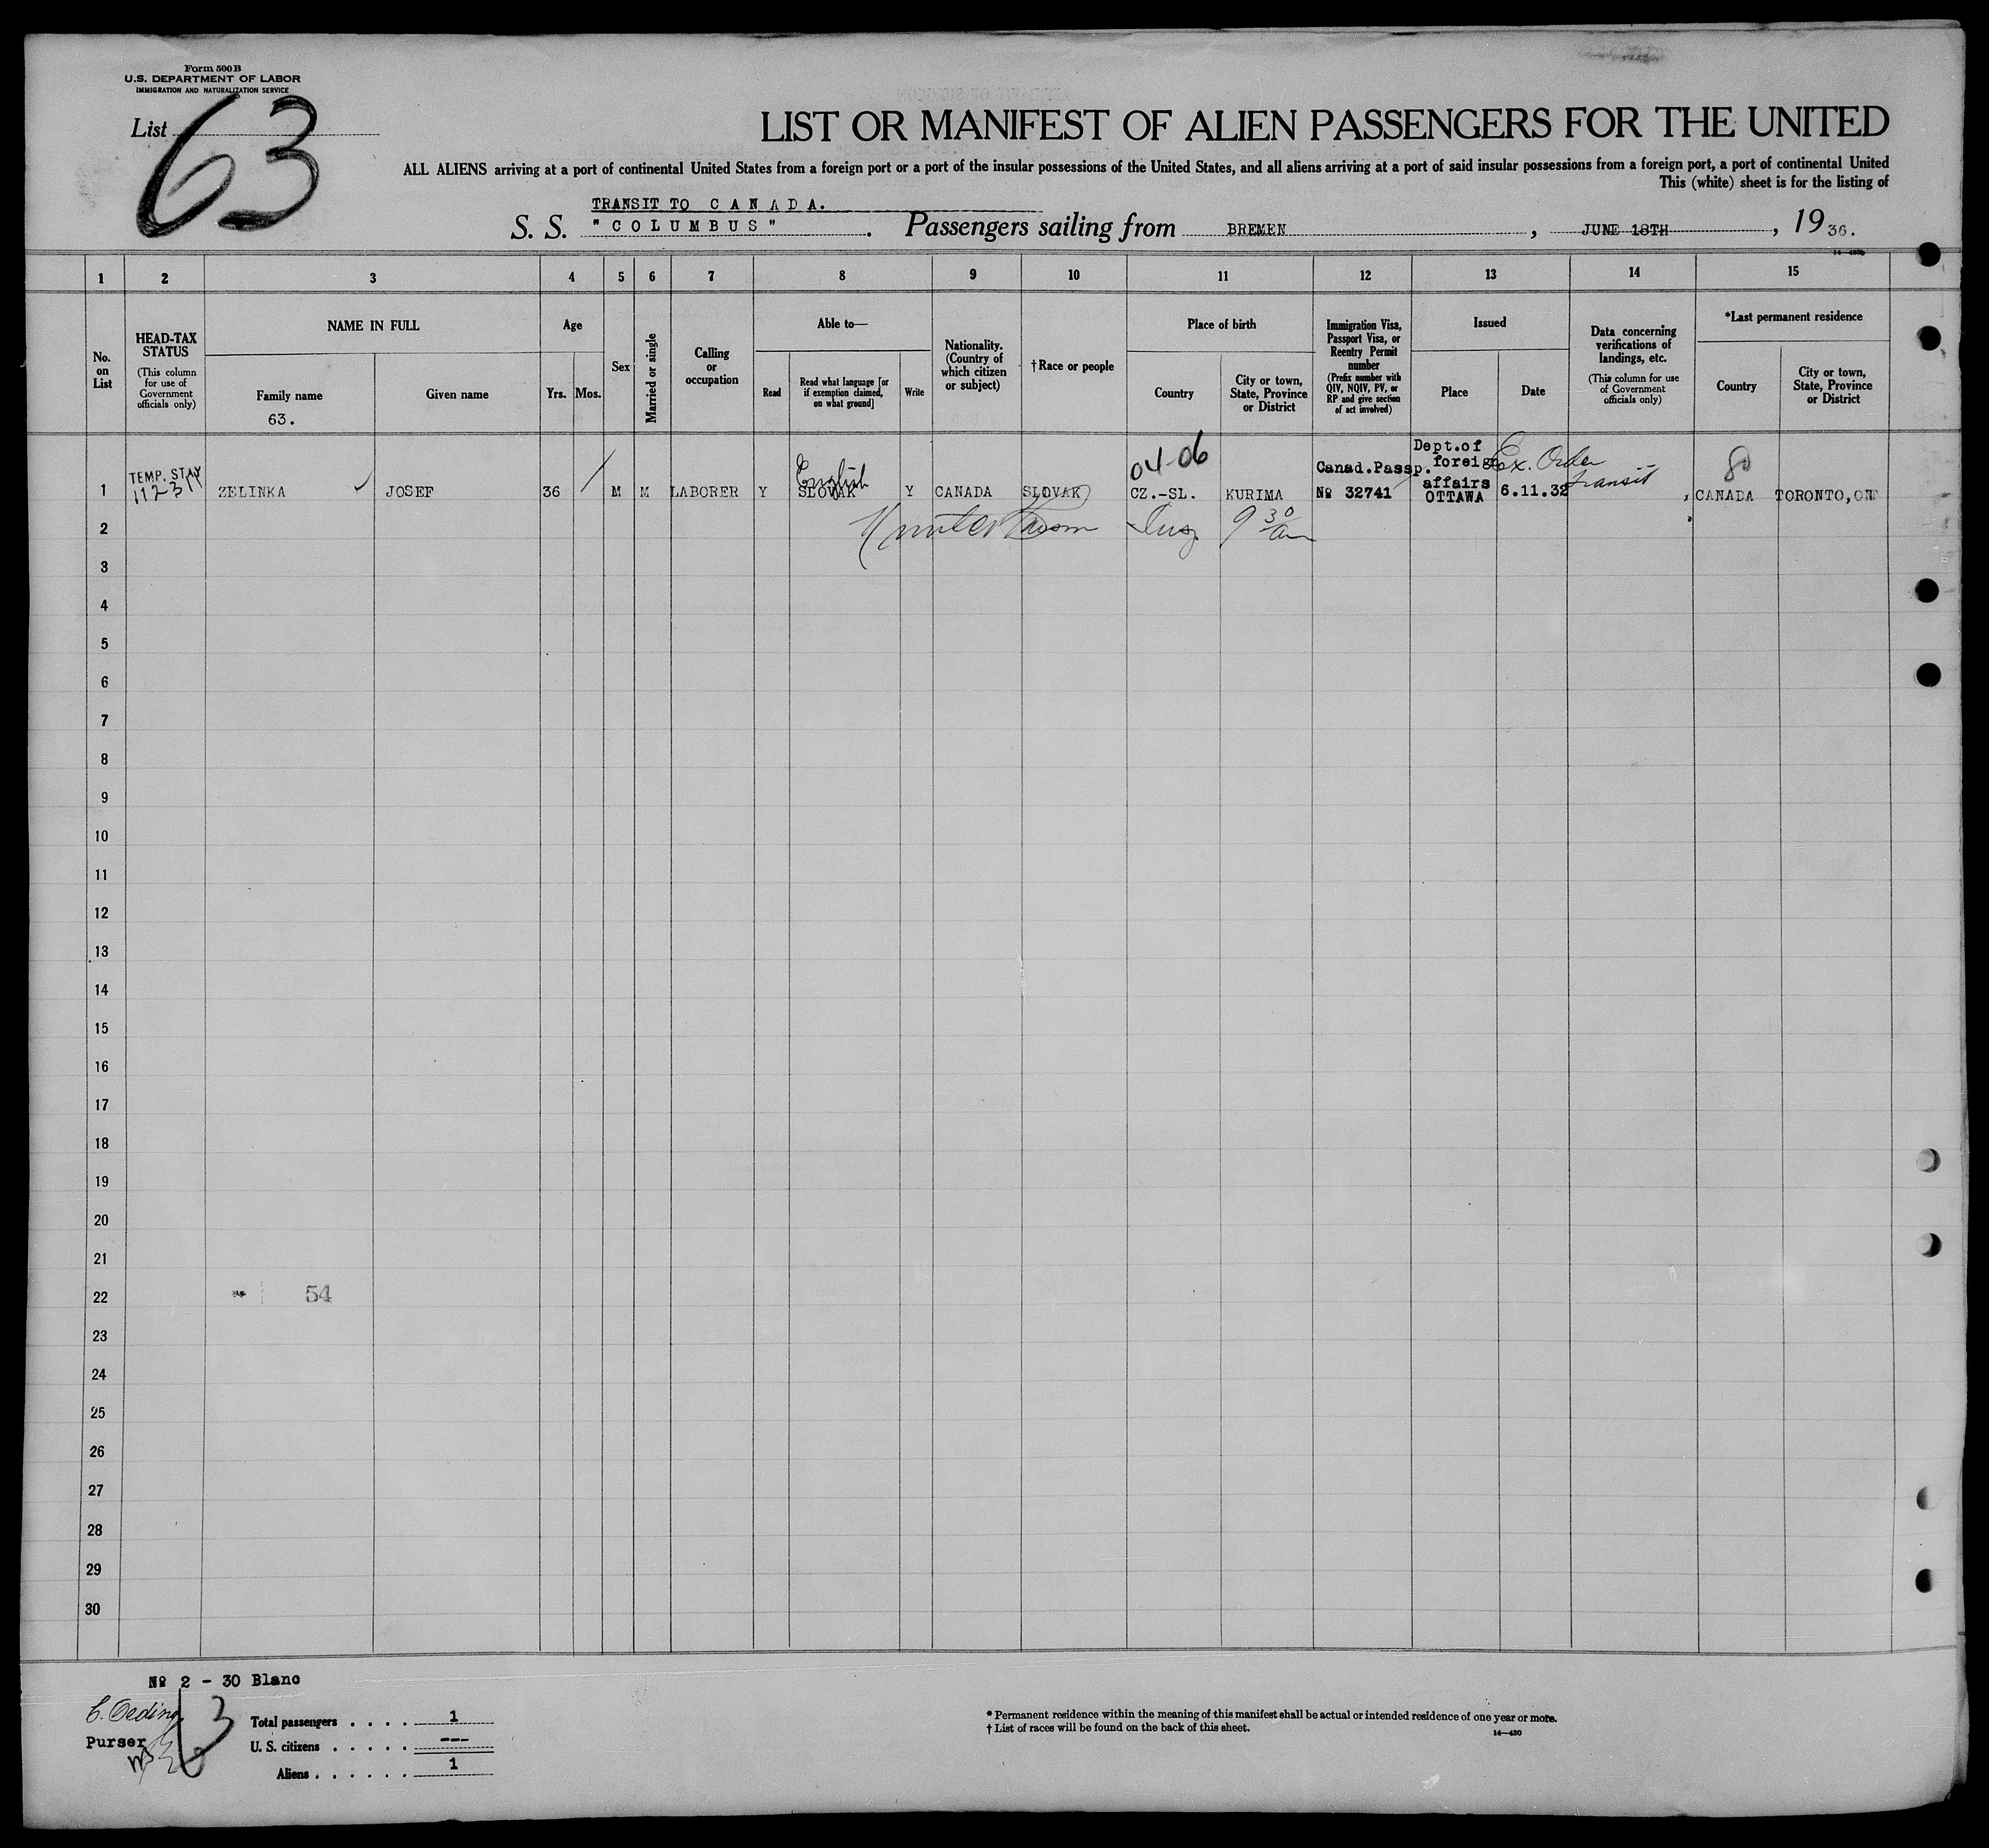 Form 500B
U.S. DEPARTMENT OF LABOR
IMMIGRATION AND NATURALIZATION SERVICE
List 63
LIST OR MANIFEST OF ALIEN PASSENGERS FOR THE UNITED
ALL ALIENS arriving at a port of continental United States from a foreign port or a port of the insular possessions of the United States, and all aliens arriving at a port of said insular possessions from a foreign port, a port of continental United
This (white) sheet is for the listing of
TRANSIT TO CANADA.
S. S. "COLUMBUS". Passengers sailing from BREMEN, JUNE 18TH, 1936.
14—430b
1 2 3 4 5 6 7 8 9 10 11 12 13 14 15
No. on List
HEAD-TAX STATUS
(This column for use of Government officials only)
NAME IN FULL
Family name
63.
Given name
Age
Yrs. Mos.
Sex
Married or single
Calling or occupation
Able to—
Read
Read what language [or if exemption claimed, on what ground]
Write
Nationality. (Country of which citizen or subject)
†Race or people
Place of birth
Country
City or town, State, Province or District
Immigration Visa, Passport Visa, or Reentry Permit number
(Prefix number with QIV, NQIV, PV, or RP and give section of act involved)
Issued
Place
Date
Data concerning verifications of landings, etc.
(This column for use of Government officials only)
*Last permanent residence
Country
City or town, State, Province or District
English 04-06 Canad.Passp. Dept.of foreign affairs Ex. Order transit 80
1 TEMP. STAY ZELINKA JOSEF 36 M M LABORER Y SLOVAK Y CANADA SLOVAK CZ.-SL. KURIMA № 32741 OTTAWA 6.11.32 CANADA TORONTO, ONT
2 9 30
3
4
5
6
7
8
9
10
11
12
13
14
15
16
17
18
19
20
21
22 54
23
24
25
26
27
28
29
30
№ 2 - 30 Blanc
C. Oeding
Purser
63
Total passengers . . . . 1
U. S. citizens . . . . . ---
Aliens . . . . . . 1
* Permanent residence within the meaning of this manifest shall be actual or intended residence of one year or more.
† List of races will be found on the back of this sheet.
14—430